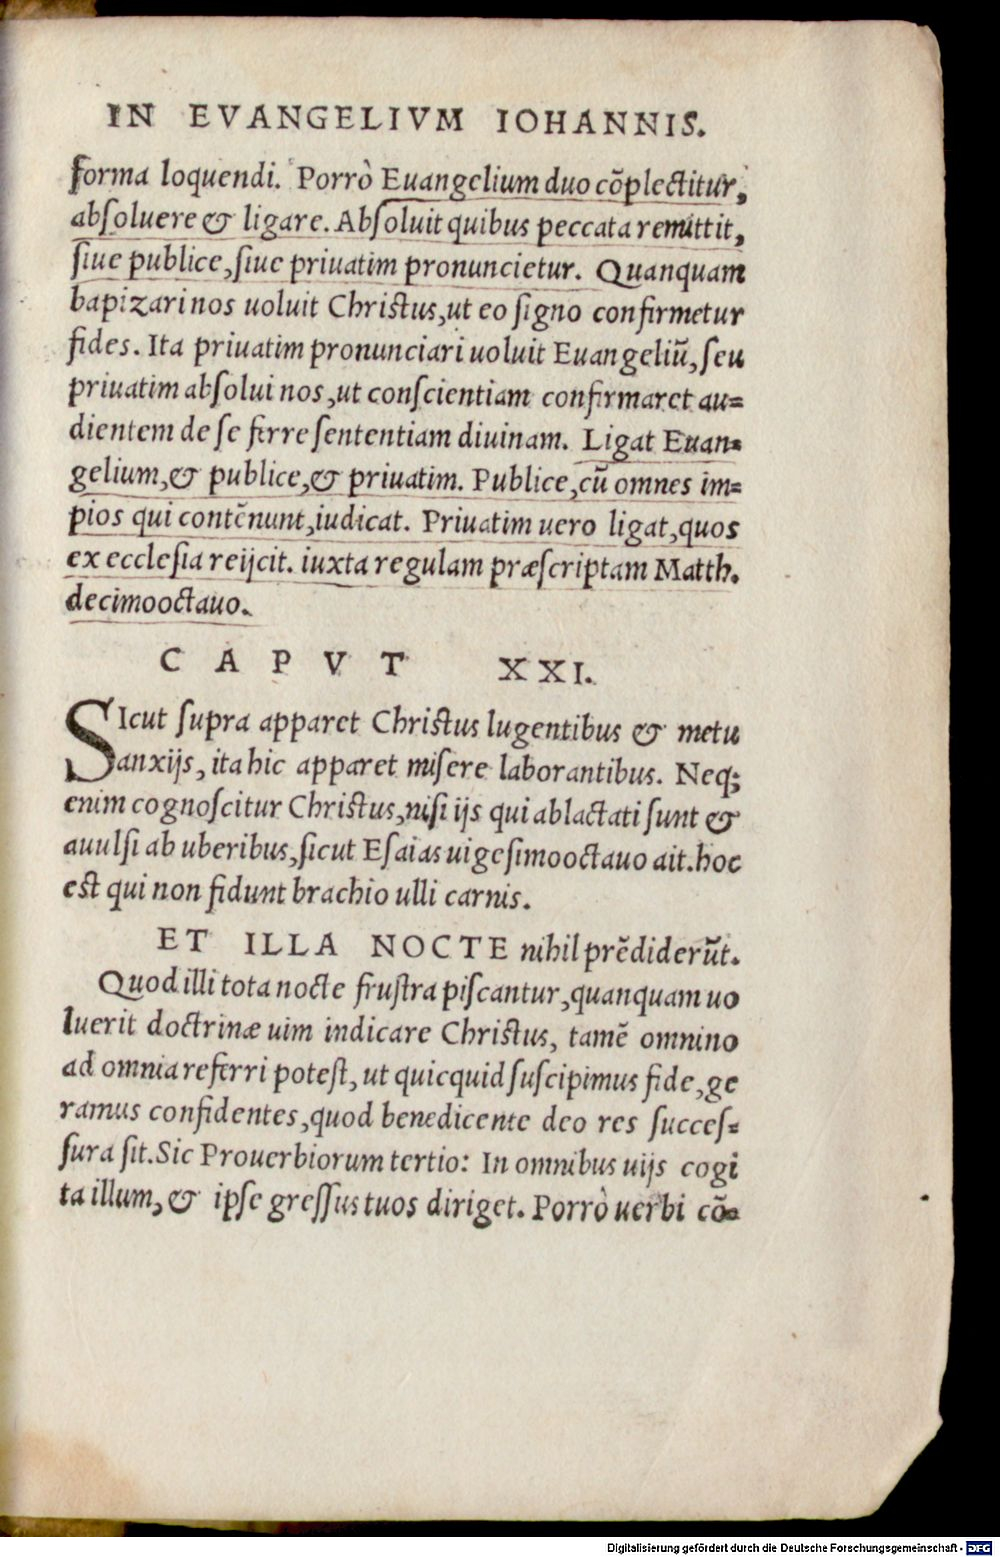 IN EVANGELIVM IOHANNIS.
forma loquendi. Porrò Euangelium duo cõplectitur,
absoluere & ligare. Absoluit quibus peccata remittit,
siue publice, siue priuatim pronuncietur. Quanquam
bapizari nos uoluit Christus, ut eo signo confirmetur
fides. Ita priuatim pronunciari uoluit Euangeliũ, seu
priuatim absolui nos, ut conscientiam confirmaret au=
dientem de se ferre sententiam diuinam. Ligat Euan=
gelium, & publice, & priuatim. Publice, cũ omnes im=
pios qui contẽnunt, iudicat. Priuatim uero ligat, quos
ex ecclesia reijcit. iuxta regulam præscriptam Matth.
decimooctauo.
CAPVT XXI.
SIcut supra apparet Christus lugentibus & metu
anxijs, ita hic apparet misere laborantibus. Neq;
enim cognoscitur Christus, nisi ijs qui ablactati sunt &
auulsi ab uberibus, sicut Esaias uigesimooctauo ait. hoc
est qui non fidunt brachio ulli carnis.
ET ILLA NOCTE nihil prẽdiderũt.
Quod illi tota nocte frustra piscantur, quanquam uo
luerit doctrinæ uim indicare Christus, tamẽ omnino
ad omnia referri potest, ut quicquid suscipimus fide, ge
ramus confidentes, quod benedicente deo res succes=
sura sit. Sic Prouerbiorum tertio: In omnibus uijs cogi
ta illum, & ipse gressus tuos diriget. Porrò uerbi cõ=
Digitalisierung gefördert durch die Deutsche Forschungsgemeinschaft - DFG